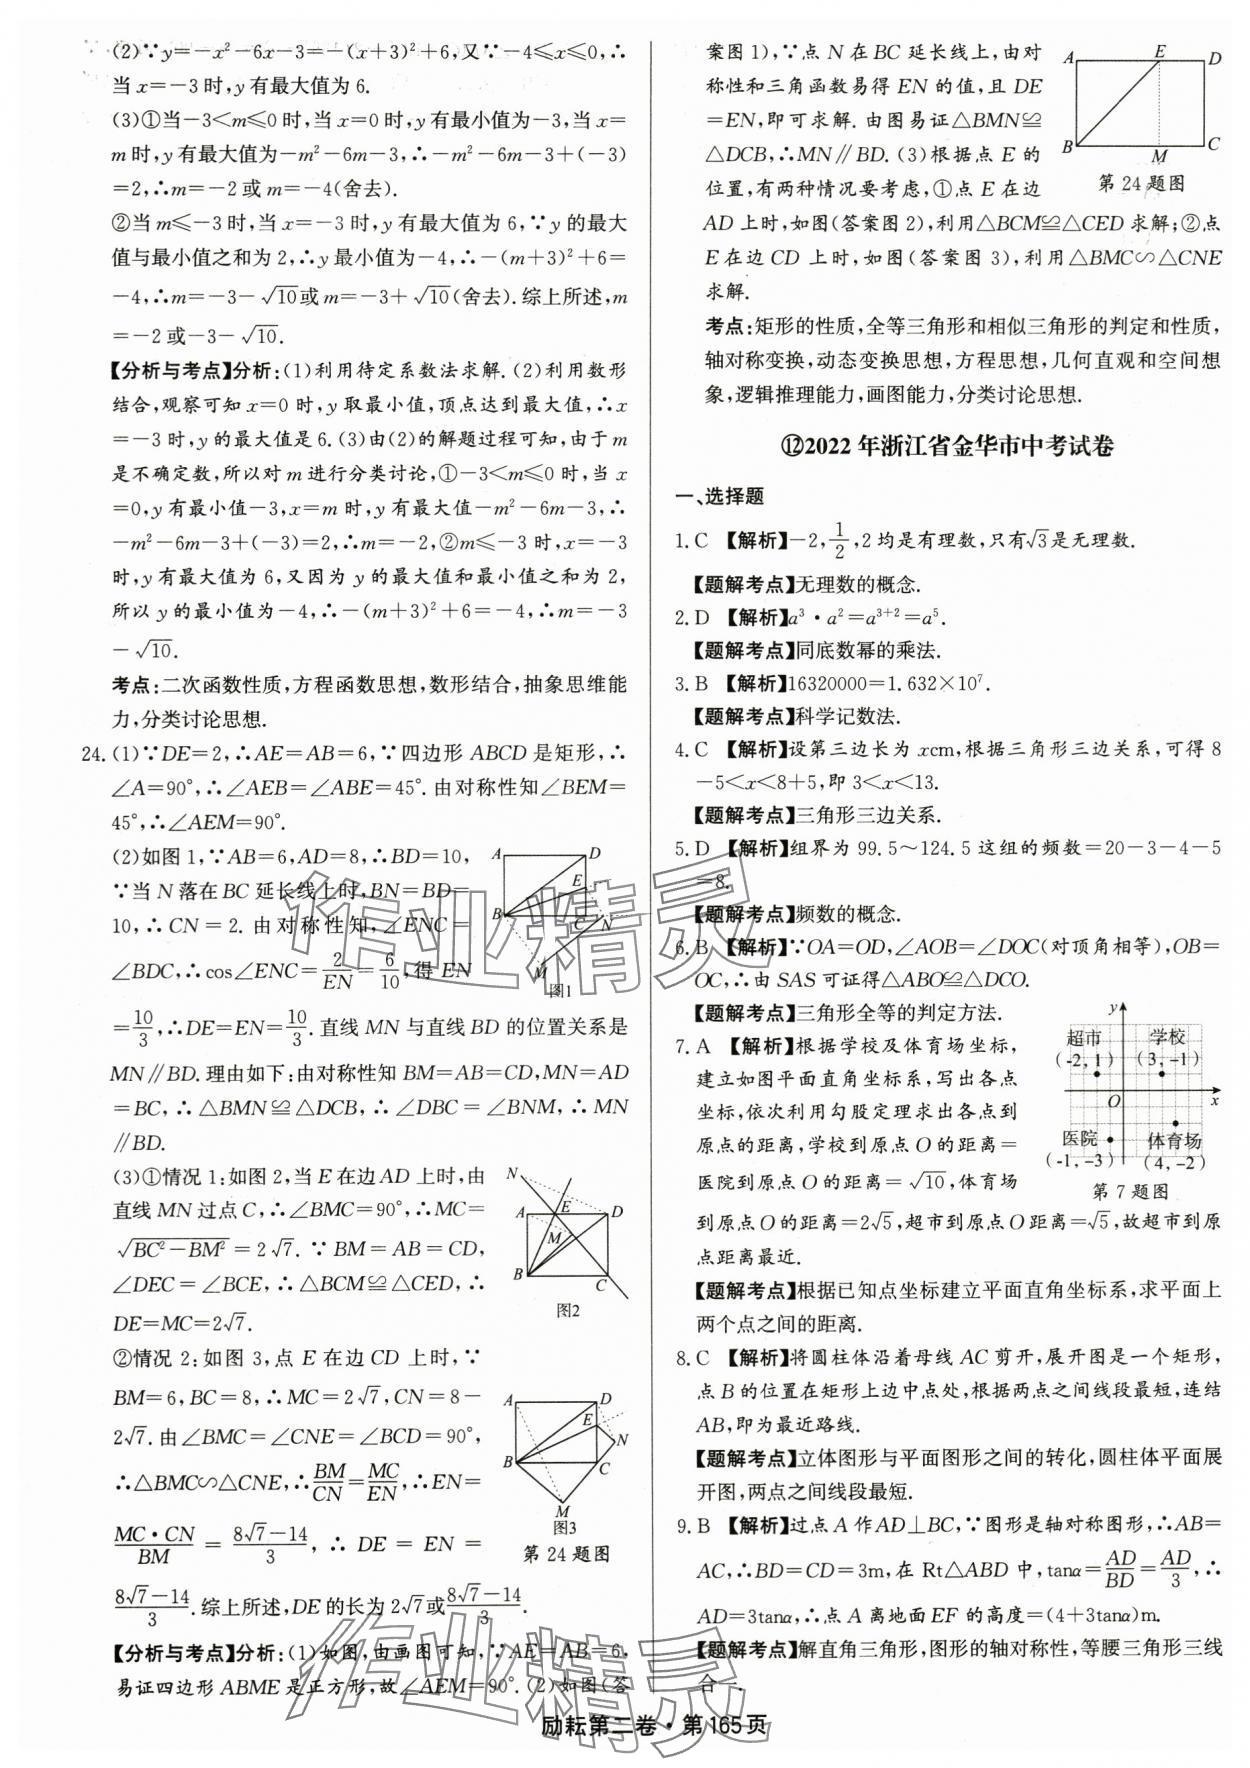 (2)∵y=-x²-6x-3=-(x+3)²+6,又∵-4≤x≤0,∴
当x=-3时,y有最大值为6.
(3)①当-3<m≤0时,当x=0时,y有最小值为-3,当x=
m时,y有最大值为-m²-6m-3,∴-m²-6m-3+(-3)
=2,∴m=-2或m=-4(舍去).
②当m≤-3时,当x=-3时,y有最大值为6,∵y的最大
值与最小值之和为2,∴y最小值为-4,∴-(m+3)²+6=
-4,∴m=-3-√10或m=-3+√10(舍去).综上所述,m
=-2或-3-√10.
【分析与考点】分析:(1)利用待定系数法求解.(2)利用数形
结合,观察可知x=0时,y取最小值,顶点达到最大值,∴x
=-3时,y的最大值是6.(3)由(2)的解题过程可知,由于m
是不确定数,所以对m进行分类讨论,①-3<m≤0时,当x
=0,y有最小值-3,x=m时,y有最大值-m²-6m-3,∴
-m²-6m-3+(-3)=2,∴m=-2,②m≤-3时,x=-3
时,y有最大值为6,又因为y的最大值和最小值之和为2,
所以y的最小值为-4,∴-(m+3)²+6=-4,∴m=-3
-√10.
考点:二次函数性质,方程函数思想,数形结合,抽象思维能
力,分类讨论思想.
24.(1)∵DE=2,∴AE=AB=6,∵四边形ABCD是矩形,∴
∠A=90°,∴∠AEB=∠ABE=45°.由对称性知∠BEM=
45°,∴∠AEM=90°.
(2)如图1,∵AB=6,AD=8,∴BD=10,
∵当N落在BC延长线上时,BN=BD=
10,∴CN=2.由对称性知,∠ENC=
∠BDC,∴cos∠ENC=2/EN=6/10,得EN
=10/3,∴DE=EN=10/3.直线MN与直线BD的位置关系是
MN∥BD.理由如下:由对称性知BM=AB=CD,MN=AD
=BC,∴△BMN≌△DCB,∴∠DBC=∠BNM,∴MN
∥BD.
A D E B C N M
图1
(3)①情况1:如图2,当E在边AD上时,由
直线MN过点C,∴∠BMC=90°,∴MC=
√(BC²-BM²)=2√7.∵BM=AB=CD,
∠DEC=∠BCE,∴△BCM≌△CED,∴
DE=MC=2√7.
N A E D M B C
图2
②情况2:如图3,点E在边CD上时,∵
BM=6,BC=8,∴MC=2√7,CN=8-
2√7.由∠BMC=∠CNE=∠BCD=90°,
∴△BMC∽△CNE,∴BM/CN=MC/EN,∴EN=
MC·CN/BM=(8√7-14)/3,∴DE=EN=
(8√7-14)/3.综上所述,DE的长为2√7或(8√7-14)/3.
A D E N B C M
图3
第24题图
【分析与考点】分析:(1)如图,由画图可知,∵AE=AB=6,
易证四边形ABME是正方形,故∠AEM=90°.(2)如图(答
案图1),∵点N在BC延长线上,由对
称性和三角函数易得EN的值,且DE
=EN,即可求解.由图易证△BMN≌
△DCB,∴MN∥BD.(3)根据点E的
位置,有两种情况要考虑,①点E在边
AD上时,如图(答案图2),利用△BCM≌△CED求解;②点
E在边CD上时,如图(答案图3),利用△BMC∽△CNE
求解.
A E D B M C
第24题图
考点:矩形的性质,全等三角形和相似三角形的判定和性质,
轴对称变换,动态变换思想,方程思想,几何直观和空间想
象,逻辑推理能力,画图能力,分类讨论思想.
⑫2022年浙江省金华市中考试卷
一、选择题
1.C 【解析】-2,1/2,2均是有理数,只有√3是无理数.
【题解考点】无理数的概念.
2.D 【解析】a³·a²=a³⁺²=a⁵.
【题解考点】同底数幂的乘法.
3.B 【解析】16320000=1.632×10⁷.
【题解考点】科学记数法.
4.C 【解析】设第三边长为xcm,根据三角形三边关系,可得8
-5<x<8+5,即3<x<13.
【题解考点】三角形三边关系.
5.D 【解析】组界为99.5~124.5这组的频数=20-3-4-5
=8.
【题解考点】频数的概念.
6.B 【解析】∵OA=OD,∠AOB=∠DOC(对顶角相等),OB=
OC,∴由SAS可证得△ABO≌△DCO.
【题解考点】三角形全等的判定方法.
7.A 【解析】根据学校及体育场坐标,
建立如图平面直角坐标系,写出各点
坐标,依次利用勾股定理求出各点到
原点的距离,学校到原点O的距离=
医院到原点O的距离=√10,体育场
到原点O的距离=2√5,超市到原点O距离=√5,故超市到原
点距离最近.
y
超市 学校
(-2,1) (3,-1)
O x
医院 体育场
(-1,-3) (4,-2)
第7题图
【题解考点】根据已知点坐标建立平面直角坐标系,求平面上
两个点之间的距离.
8.C 【解析】将圆柱体沿着母线AC剪开,展开图是一个矩形,
点B的位置在矩形上边中点处,根据两点之间线段最短,连结
AB,即为最近路线.
【题解考点】立体图形与平面图形之间的转化,圆柱体平面展
开图,两点之间线段最短.
9.B 【解析】过点A作AD⊥BC,∵图形是轴对称图形,∴AB=
AC,∴BD=CD=3m,在Rt△ABD中,tanα=AD/BD=AD/3,∴
AD=3tanα,∴点A离地面EF的高度=(4+3tanα)m.
【题解考点】解直角三角形,图形的轴对称性,等腰三角形三线
合一.
励耘第二卷·第165页
作业精灵
作业精灵